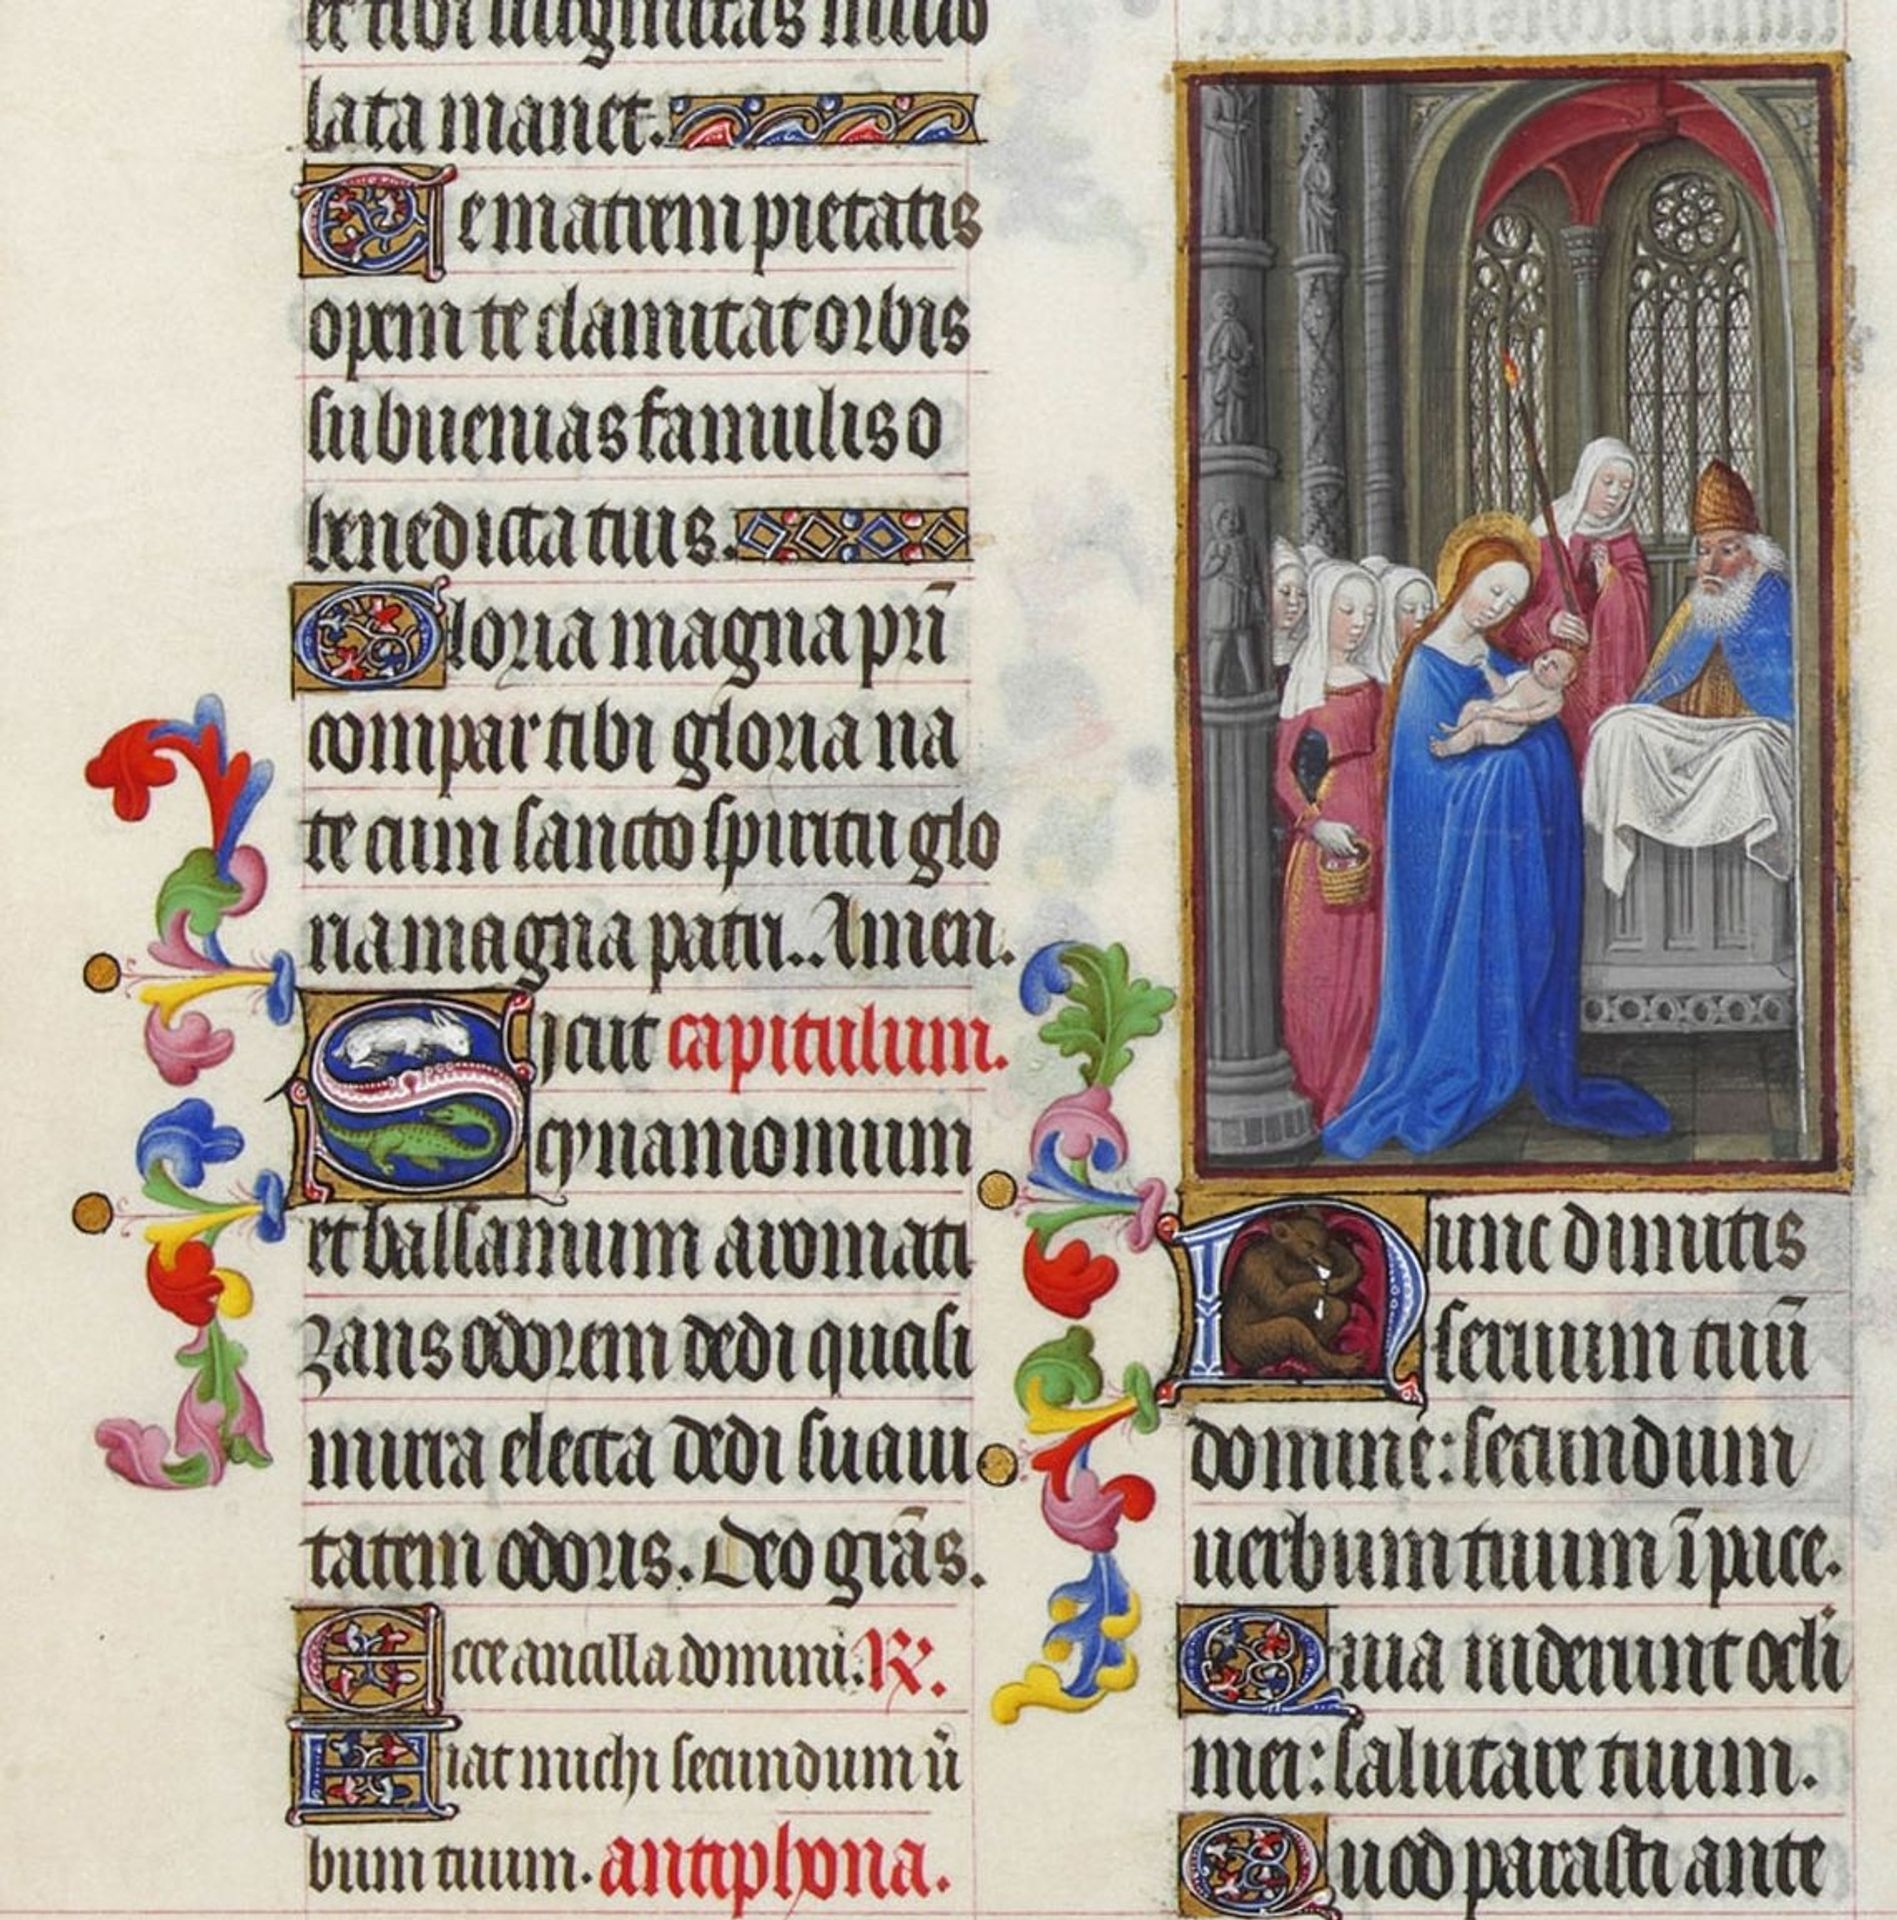 et tibi uirginitas inuio
lata manet.
Te matrem pietatis
opem te clamitat orbis
subuenias famulis o
benedicta tuis.
Gloria magna pr̄i
compar tibi gloria na
te cum sancto spiritu glo
ria magna patri.. Amen.
Sicut capitulum.
cynamomum
et balsamum aromati
zans odorem dedi quasi
mirra electa dedi suaui
tatem odoris. Deo gr̄as.
Ecce ancilla domini. R̷.
Fiat michi secundum ū
bum tuum. antiphona.
Nunc dimitis
seruum tuū
domine: secundum
uerbum tuum ī pace.
Quia uiderunt ocli
mei: salutare tuum.
Quod parasti ante